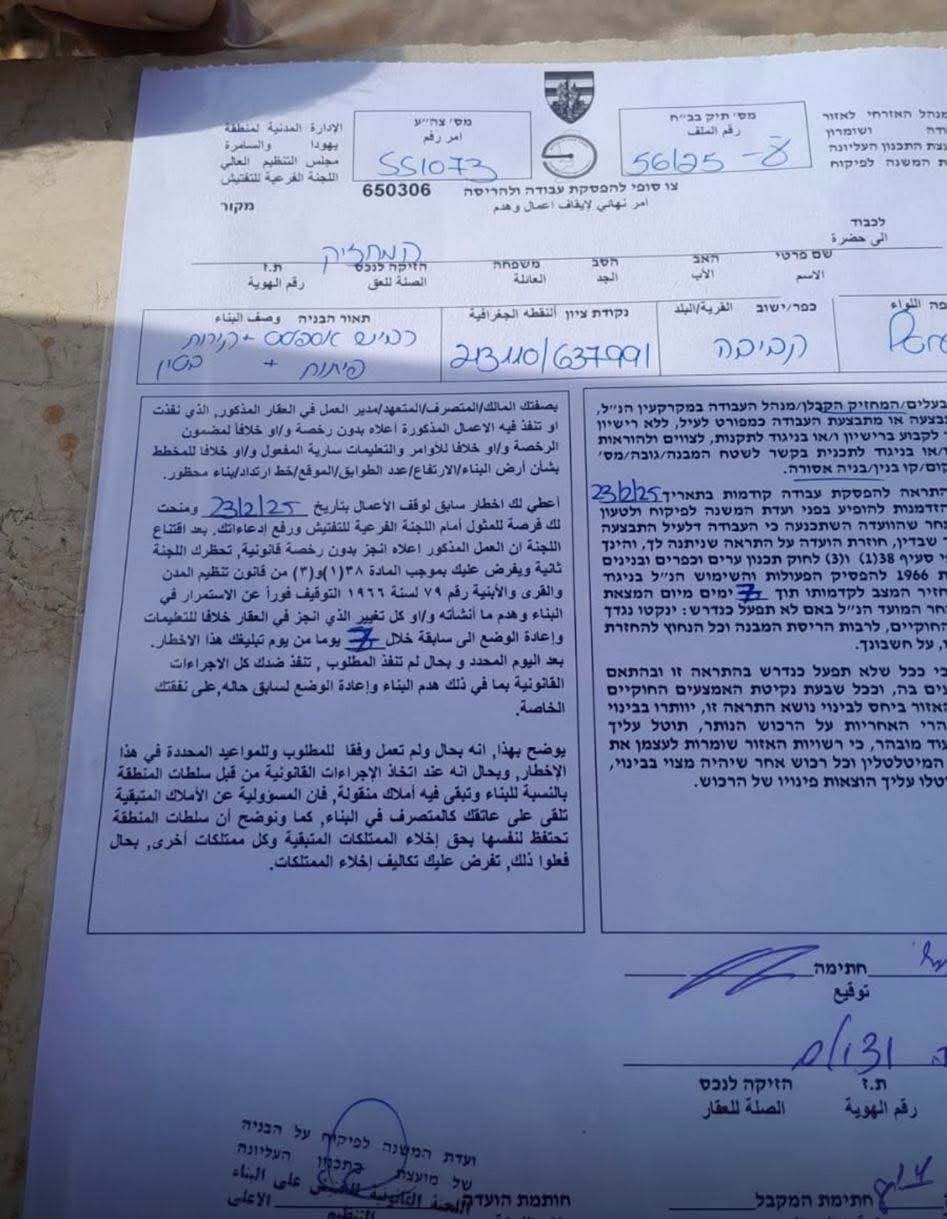 מנהל האזרחי לאזור
ושומרון
עצת התכנון העליונה
ת המשנה לפיקוח
מס' תיק בב"ח
رقم الملف
56/25
מס' צה"ע
امر رقم
551073
الإدارة المدنية لمنطقة
يهودا والسامرة
مجلس التنظيم العالي
اللجنة الفرعية للتفتيش
צו סופי להפסקת עבודה ולהריסה 650306
امر نهائي لإيقاف اعمال وهدم
מקור
לכבוד
الى حضرة
המחזיק
שם פרטי האב הסב משפחה הזיקה לנכס ת.ז
الاسم الأب الجد العائلة الصلة للعق رقم الهوية
פה اللواء
כפר/ישוב القرية/البلد
קביבה
נקודת ציון ألنقطه الجغرافية
213110/637991
תאור הבניה وصف البناء
כביש אספלט + קירות
פיתוח +
בעלים/המחזיק הקבלן/מנהל העבודה במקרקעין הנ"ל,
בצעה או מתבצעת העבודה כמפורט לעיל, ללא רישיון
לקבוע ברישיון ו/או בניגוד לתקנות, לצווים ולהוראות
/או בניגוד לתכנית בקשר לשטח המבנה/גובה/מס'
קום/קו בנין/בניה אסורה.
התראה להפסקת עבודה קודמות בתאריך 23/2/25
הזדמנות להופיע בפני ועדת המשנה לפיקוח ולטעון
חר שהוועדה השתכנעה כי העבודה דלעיל התבצעה
שבדין, חוזרת הועדה על התראה שניתנה לך, והינך
סעיף 38(1) ו(3) לחוק תכנון ערים וכפרים ובנינים
ת 1966 להפסיק הפעולות והשימוש הנ"ל בניגוד
חזיר המצב לקדמותו תוך 7 ימים מיום המצאת
חר המועד הנ"ל באם לא תפעל כנדרש: ינקטו נגדך
החוקיים, לרבות הריסת המבנה וכל הנחוץ להחזרת
, על חשבונך.
כי ככל שלא תפעל כנדרש בהתראה זו ובהתאם
עים בה, וככל שבעת נקיטת האמצעים החוקיים
האזור ביחס לבינוי נושא התראה זו, יוותרו בבינוי
הרי האחריות על הרכוש הנותר, תוטל עליך
עוד מובהר, כי רשויות האזור שומרות לעצמן את
המיטלטלין וכל רכוש אחר שיהיה מצוי בבינוי,
טלו עליך הוצאות פינויו של הרכוש.
بصفتك المالك/المتصرف/المتعهد/مدير العمل في العقار المذكور, الذي نفذت
او تنفذ فيه الاعمال المذكورة اعلاه بدون رخصة و/او خلافا لمضمون
الرخصة و/او خلافا للأوامر والتعليمات سارية المفعول و/او خلافا للمخطط
بشأن أرض البناء/الارتفاع/عدد الطوابق/الموقع/خط ارتداد/بناء محظور.
أعطي لك اخطار سابق لوقف الأعمال بتأريخ 23/2/25 ومنحت
لك فرصة للمثول أمام اللجنة الفرعية للتفتيش ورفع إدعاءاتك. بعد اقتناع
اللجنة ان العمل المذكور اعلاه انجز بدون رخصة قانونية, تحظرك اللجنة
ثانية ويفرض عليك بموجب المادة ٣٨(١)و(٣) من قانون تنظيم المدن
والقرى والأبنية رقم ٧٩ لسنة ١٩٦٦ التوقيف فوراً عن الاستمرار في
البناء وهدم ما أنشأته و/او كل تغيير الذي انجز في العقار خلافا للتعليمات
وإعادة الوضع الى سابقة خلال 7 يوما من يوم تبليغك هذا الاخطار.
بعد اليوم المحدد و بحال لم تنفذ المطلوب , تنفذ ضدك كل الاجراءات
القانونية بما في ذلك هدم البناء وإعادة الوضع لسابق حاله, على نفقتك
الخاصة.
يوضح بهذا, انه بحال ولم تعمل وفقا للمطلوب وللمواعيد المحددة في هذا
الإخطار, وبحال انه عند اتخاذ الإجراءات القانونية من قبل سلطات المنطقة
بالنسبة للبناء وتبقى فيه أملاك منقولة, فان المسؤولية عن الأملاك المتبقية
تلقى على عاتقك كالمتصرف في البناء, كما ونوضح أن سلطات المنطقة
تحتفظ لنفسها بحق إخلاء الممتلكات المتبقية وكل ممتلكات أخرى, بحال
فعلوا ذلك, تفرض عليك تكاليف إخلاء الممتلكات.
חתימה
توقيع
ת.ז הזיקה לנכס
رقم الهوية الصلة للعقار
חתימת המקבל
חותמת הועדה
ועדת המשנה לפיקוח על הבניה
של מועצת התכנון העליונה
على البناء
الاعلى